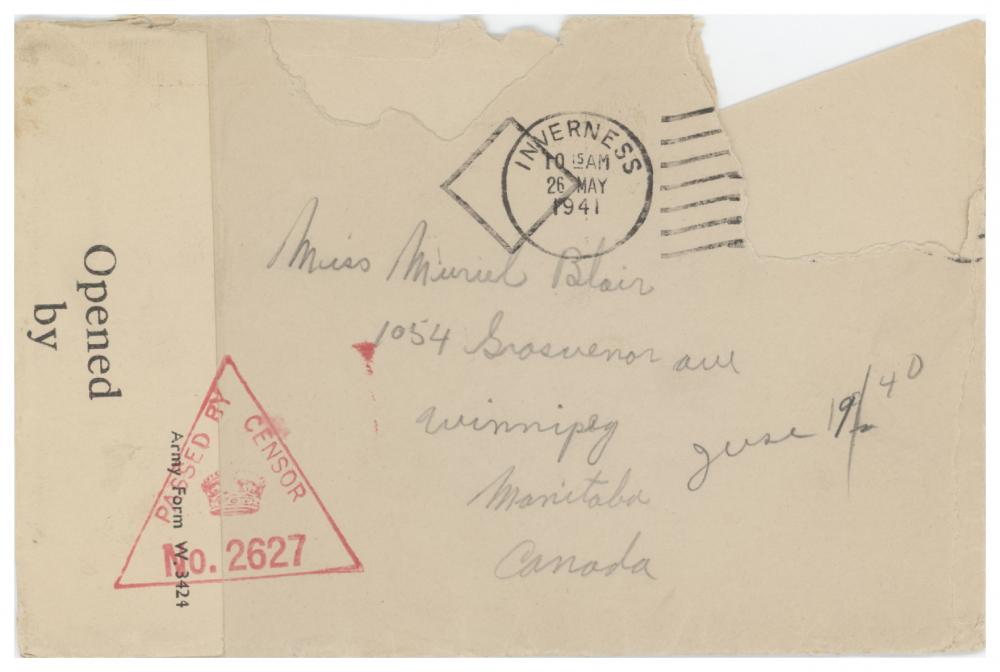 INVERNESS
10 15 AM
26 MAY
1941
Miss Muriel Blair
1054 Grosvenor ave
Winnipeg
Manitoba
Canada
June 19/40
Opened
by
PASSED BY CENSOR
No. 2627
Army Form W.3424